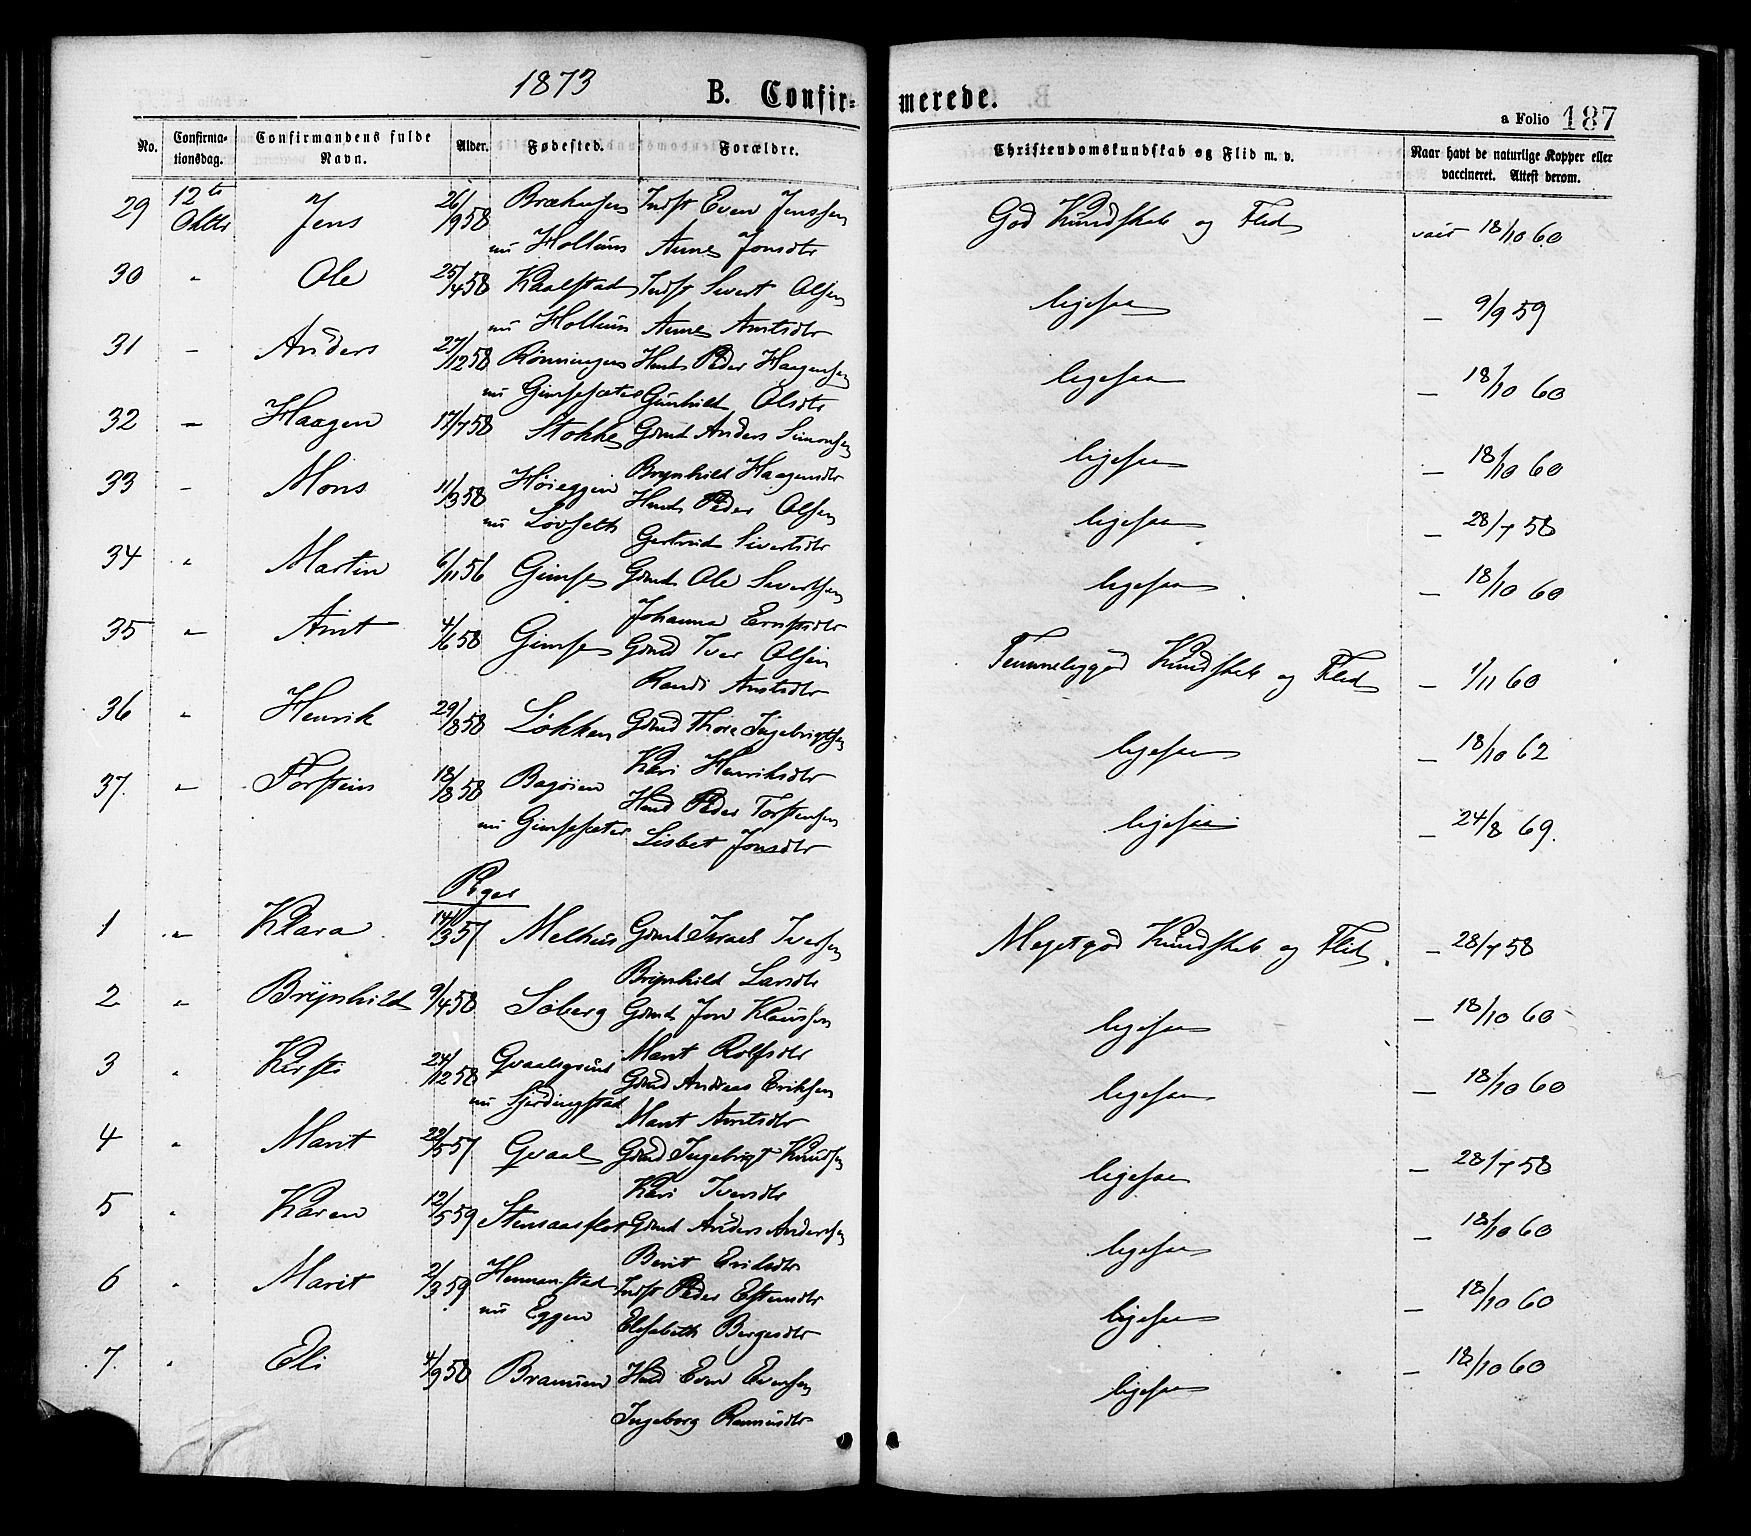 1873
B. Confir-
merede.
a Folio 187
No.
Confirma-
tionsdag.
Confirmandens fulde
Navn.
Alder.
Fødested.
Forældre.
Christendomskundskab og Flid m. v.
Naar havt de naturlige Kopper eller
vaccineret. Attest derom.
29 12te Jens 26/9 58 Indst Even Jenssen God Kundskab og Flid 18/10 60
Oktbr nu Hollum Anne Jonsdtr
30 " Ole 25/4 58 Kaalstad Indst Sivert Olsen ligesaa — 9/9 59
nu Hollum Anne Arntsdtr
31 — Anders 27/12 58 Rønningen Husmd Peder Haagensen ligesaa — 18/10 60
nu Gimsesæter Gunhild Olsdtr
32 — Haagen 17/7 58 Stokke Grmd Anders Simonsen ligesaa — 18/10 60
Brynhild Haagensdtr
33 — Mons 11/3 58 Høieggen Husmd Peder Olsen ligesaa — 28/7 58
nu Løvseth Gertrud Sivertsdtr
34 " Martin 6/11 56 Gimse Grmd Ole Sivertsen ligesaa — 18/10 60
Johanna Ernstsdtr
35 " Arnt 4/6 58 Gimse Grmd Iver Olsen Temmeliggod Kundskab og Flid — 1/11 60
Randi Arntsdtr
36 " Henrik 29/8 58 Løkken Grmd Thore Ingebrigtsen ligesaa — 18/10 62
Kari Henriksdtr
37. " Torstein 18/8 58 Bagøien Husmd Peder Torstensen ligesaa — 24/8 69.
nu Gimsesæter Lisbet Jonsdtr
Piger
1 " Klara 14/3 57 Melhus Grmd Israel Iversen Megetgod Kundskab og Flid. — 28/7 58
Brynhild Larsdtr
2 " Brynhild 9/4 58 Søberg Grmd Jon Klaussen ligesaa — 18/10 60
Marit Rolfsdtr
3 " Kirsti 24/12 58 Qvaalsgrind Grmd Andreas Eriksen ligesaa — 18/10 60
nu Fjerdingstad Marit Arntsdtr
4 " Marit 22/5 57 Qvaal Grmd Ingebrigt Knudsen ligesaa — 28/7 58
Kari Iversdtr
5 " Karen 12/5 59 Grmd Anders Andersen ligesaa — 18/10 60
Berit Eriksdtr
6 " Marit 2/3 59 Hermanstad Indst Peder Estensdtr ligesaa — 18/10 60
nu Eggen Elisabeth Bergesdtr
7. " Eli 4/9 58 Bramuen Husmd Even Evensen ligesaa — 18/10 60
Ingeborg Rasmusdtr